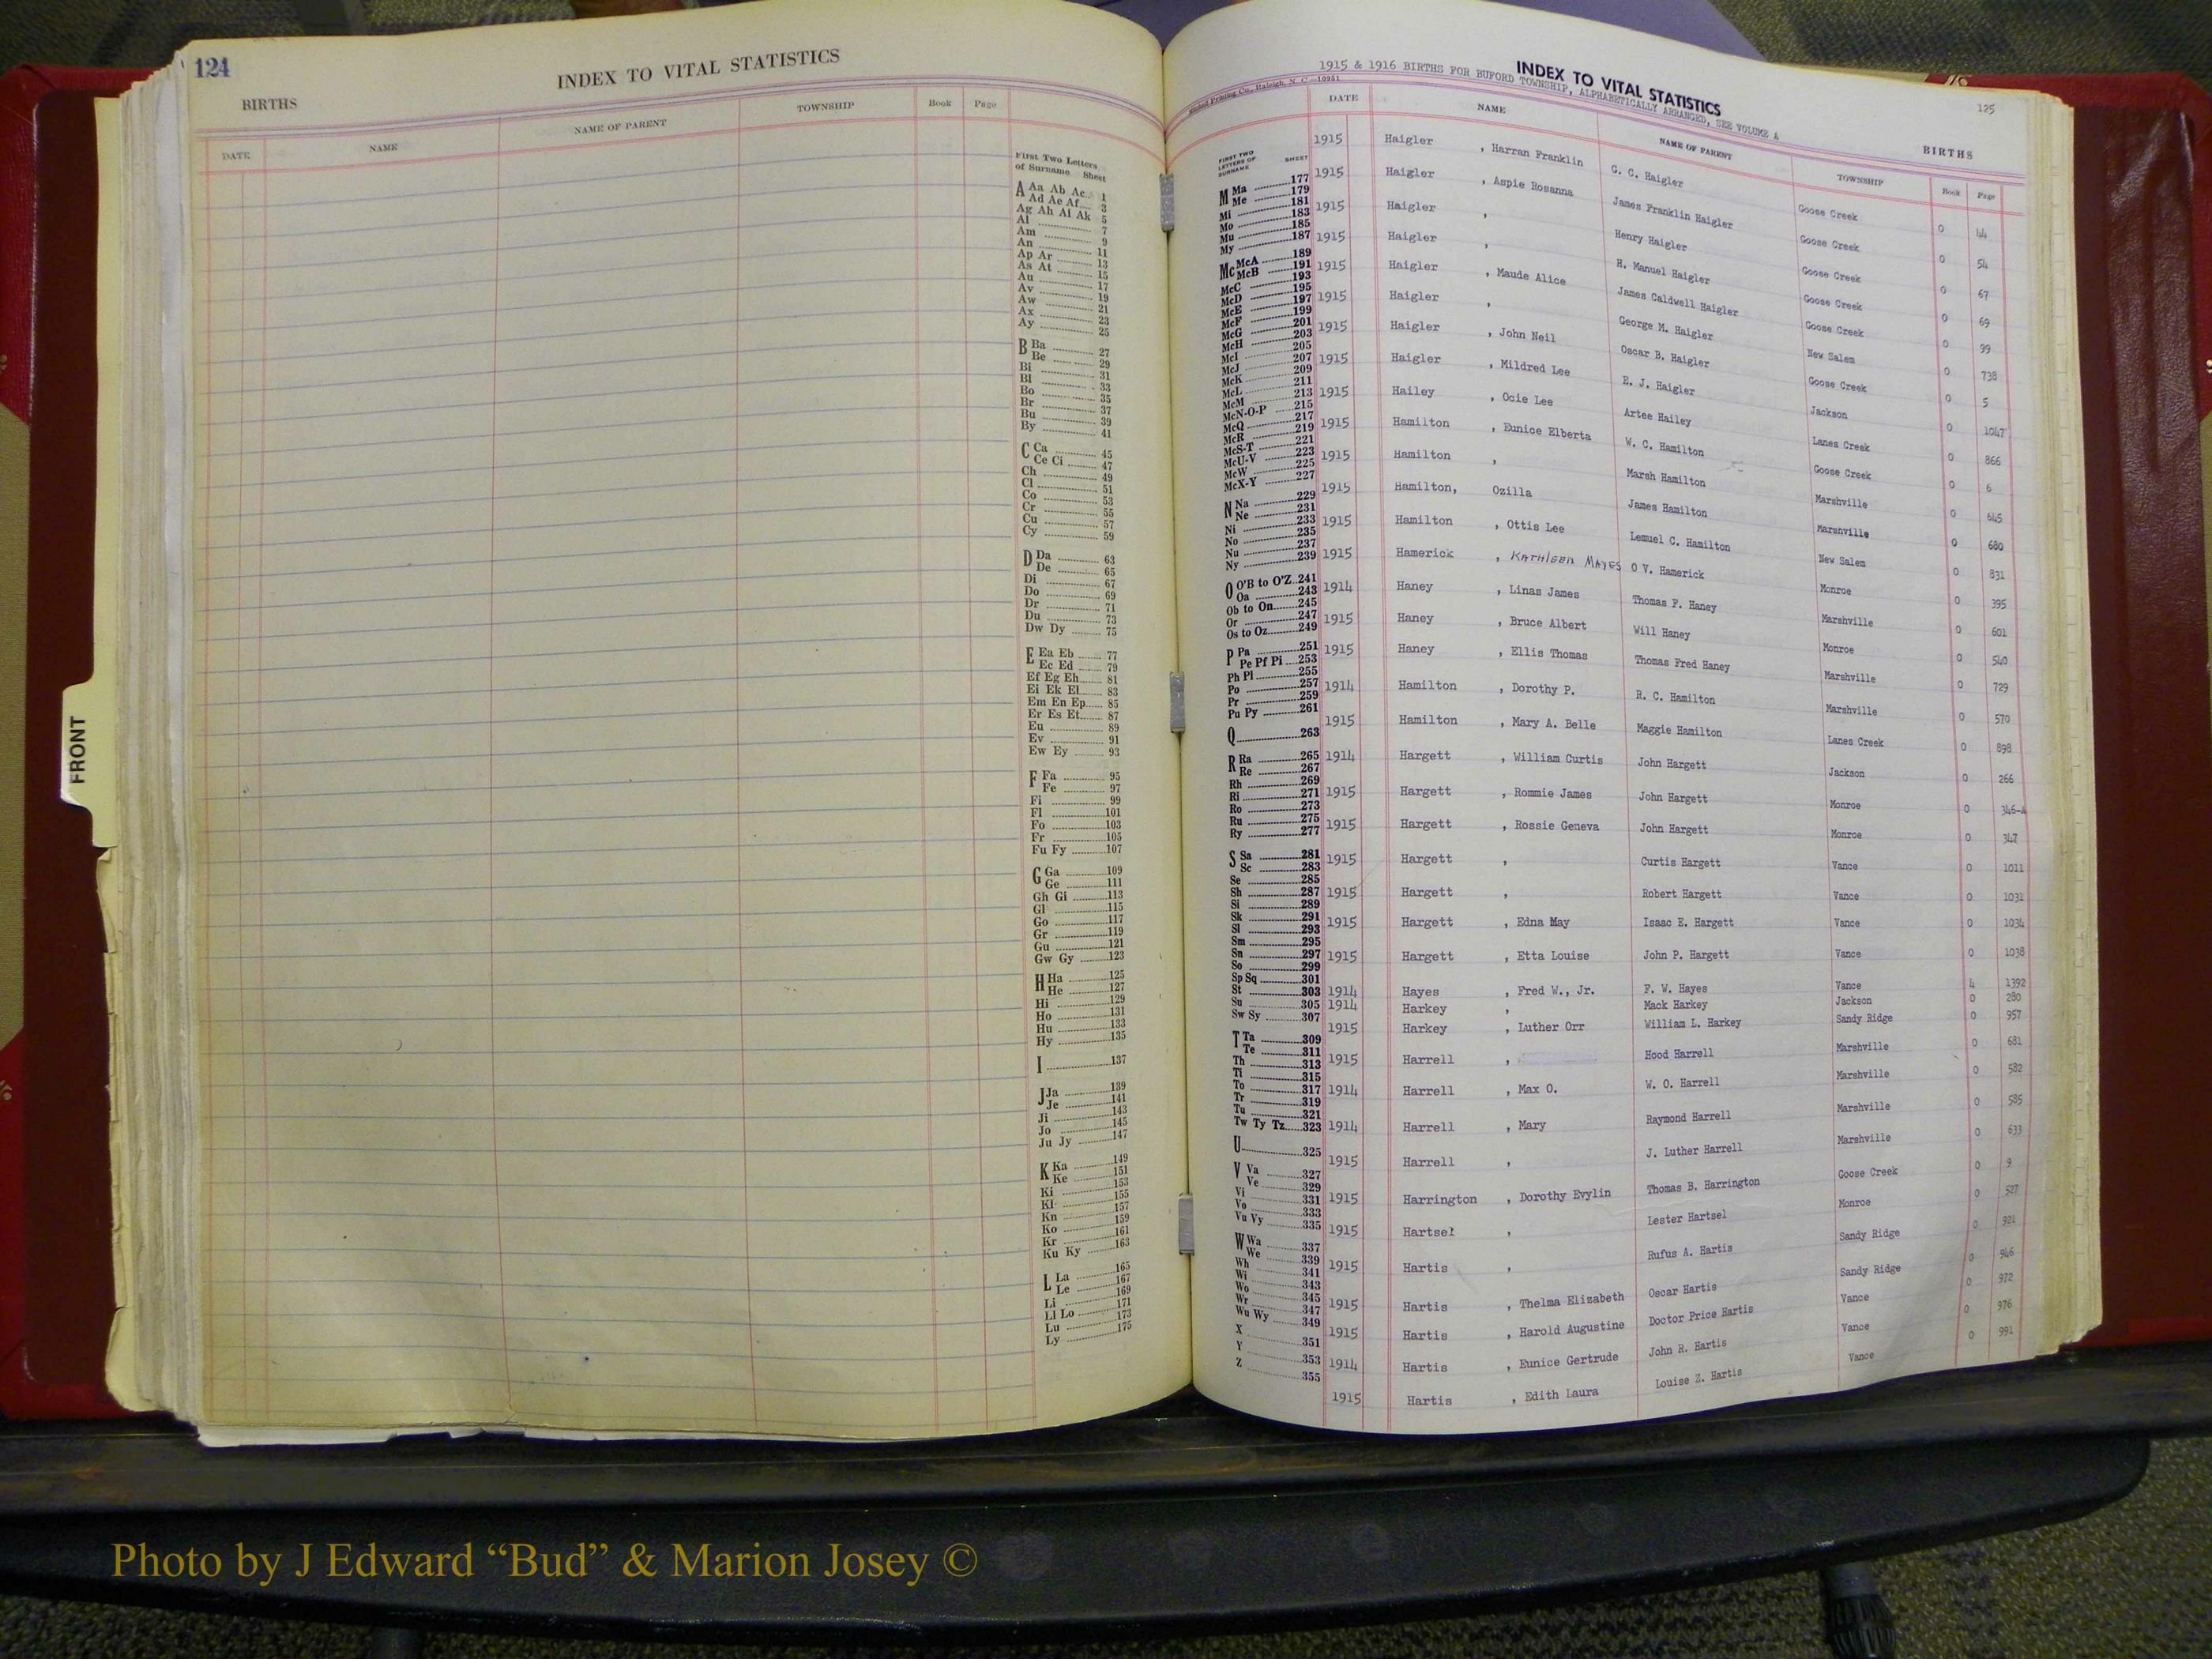 124
INDEX TO VITAL STATISTICS
BIRTHS
DATE NAME NAME OF PARENT TOWNSHIP Book Page
First Two Letters
of Surname Sheet
A Aa Ab Ac 1
Ad Ae Af 3
Ag Ah Ai Ak 5
Al 7
Am 9
An 11
Ap Ar 13
As At 15
Au 17
Av 19
Aw 21
Ax 23
Ay 25
B Ba 27
Be 29
Bi 31
Bl 33
Bo 35
Br 37
Bu 39
By 41
C Ca 45
Ce Ci 47
Ch 49
Cl 51
Co 53
Cr 55
Cu 57
Cy 59
D Da 63
De 65
Di 67
Do 69
Dr 71
Du 73
Dw Dy 75
E Ea Eb 77
Ec Ed 79
Ef Eg Eh 81
Ei Ek El 83
Em En Ep 85
Er Es Et 87
Eu 89
Ev 91
Ew Ey 93
F Fa 95
Fe 97
Fi 99
Fl 101
Fo 103
Fr 105
Fu Fy 107
G Ga 109
Ge 111
Gh Gi 113
Gl 115
Go 117
Gr 119
Gu 121
Gw Gy 123
H Ha 125
He 127
Hi 129
Ho 131
Hu 133
Hy 135
I 137
J Ja 139
Je 141
Ji 143
Jo 145
Ju Jy 147
K Ka 149
Ke 151
Ki 153
Kl 155
Kn 157
Ko 159
Kr 161
Ku Ky 163
L La 165
Le 167
Li 169
Ll Lo 171
Lu 173
Ly 175
FRONT
1915 & 1916 BIRTHS FOR BUFORD TOWNSHIP, ALPHABETICALLY ARRANGED, SEE VOLUME A
INDEX TO VITAL STATISTICS
125
Printing Co., Raleigh, N. C.—10951
BIRTHS
DATE NAME NAME OF PARENT TOWNSHIP Book Page
FIRST TWO
LETTERS OF
SURNAME SHEET
M Ma 177
Me 179
Mi 181
Mo 183
Mu 185
My 187
Mc McA 189
McB 191
McC 193
McD 195
McE 197
McF 199
McG 201
McH 203
McI 205
McJ 207
McK 209
McL 211
McM 213
McN-O-P 215
McQ 217
McR 219
McS-T 221
McU-V 223
McW 225
McX-Y 227
N Na 229
Ne 231
Ni 233
No 235
Nu 237
Ny 239
O O'B to O'Z 241
Oa 243
Ob to On 245
Or 247
Os to Oz 249
P Pa 251
Pe Pf Pi 253
Ph Pl 255
Po 257
Pr 259
Pu Py 261
Q 263
R Ra 265
Re 267
Rh 269
Ri 271
Ro 273
Ru 275
Ry 277
S Sa 281
Sc 283
Se 285
Sh 287
Si 289
Sk 291
Sl 293
Sm 295
Sn 297
So 299
Sp Sq 301
St 303
Su 305
Sw Sy 307
T Ta 309
Te 311
Th 313
Ti 315
To 317
Tr 319
Tu 321
Tw Ty Tz 323
U 325
V Va 327
Ve 329
Vi 331
Vo 333
Vu Vy 335
W Wa 337
We 339
Wh 341
Wi 343
Wo 345
Wr 347
Wu Wy 349
X 351
Y 353
Z 355
1915 Haigler , Harran Franklin G. C. Haigler Goose Creek 0 44
1915 Haigler , Aspie Rosanna James Franklin Haigler Goose Creek 0 54
1915 Haigler , Henry Haigler Goose Creek 0 67
1915 Haigler , H. Manuel Haigler Goose Creek 0 69
1915 Haigler , Maude Alice James Caldwell Haigler Goose Creek 0 99
1915 Haigler , George M. Haigler New Salem 0 738
1915 Haigler , John Neil Oscar B. Haigler Goose Creek 0 5
1915 Haigler , Mildred Lee E. J. Haigler Jackson 0 1047
1915 Hailey , Ocie Lee Artee Hailey Lanes Creek 0 866
1915 Hamilton , Eunice Elberta W. C. Hamilton Goose Creek 0 6
1915 Hamilton , Marsh Hamilton Marshville 0 645
1915 Hamilton, Ozilla James Hamilton Marshville 0 680
1915 Hamilton , Ottis Lee Lemuel C. Hamilton New Salem 0 831
1915 Hamerick , Kathleen Mayes O V. Hamerick Monroe 0 395
1914 Haney , Linas James Thomas F. Haney Marshville 0 601
1915 Haney , Bruce Albert Will Haney Monroe 0 540
1915 Haney , Ellis Thomas Thomas Fred Haney Marshville 0 729
1914 Hamilton , Dorothy P. R. C. Hamilton Marshville 0 570
1915 Hamilton , Mary A. Belle Maggie Hamilton Lanes Creek 0 898
1914 Hargett , William Curtis John Hargett Jackson 0 266
1915 Hargett , Rommie James John Hargett Monroe 0 346-A
1915 Hargett , Rossie Geneva John Hargett Monroe 0 347
1915 Hargett , Curtis Hargett Vance 0 1011
1915 Hargett , Robert Hargett Vance 0 1031
1915 Hargett , Edna May Isaac E. Hargett Vance 0 1034
1915 Hargett , Etta Louise John P. Hargett Vance 0 1038
1914 Hayes , Fred W., Jr. F. W. Hayes Vance 4 1392
1914 Harkey , Mack Harkey Jackson 0 280
1915 Harkey , Luther Orr William L. Harkey Sandy Ridge 0 957
1915 Harrell , Hood Harrell Marshville 0 681
1914 Harrell , Max O. W. O. Harrell Marshville 0 582
1914 Harrell , Mary Raymond Harrell Marshville 0 585
1915 Harrell , J. Luther Harrell Marshville 0 633
1915 Harrington , Dorothy Evylin Thomas B. Harrington Goose Creek 0 9
1915 Hartsel , Lester Hartsel Monroe 0 527
1915 Hartis , Rufus A. Hartis Sandy Ridge 0 921
1915 Hartis , Thelma Elizabeth Oscar Hartis Sandy Ridge 0 946
1915 Hartis , Harold Augustine Doctor Price Hartis Vance 0 972
1914 Hartis , Eunice Gertrude John R. Hartis Vance 0 976
1915 Hartis , Edith Laura Louise Z. Hartis Vance 0 991
Photo by J Edward “Bud” & Marion Josey ©